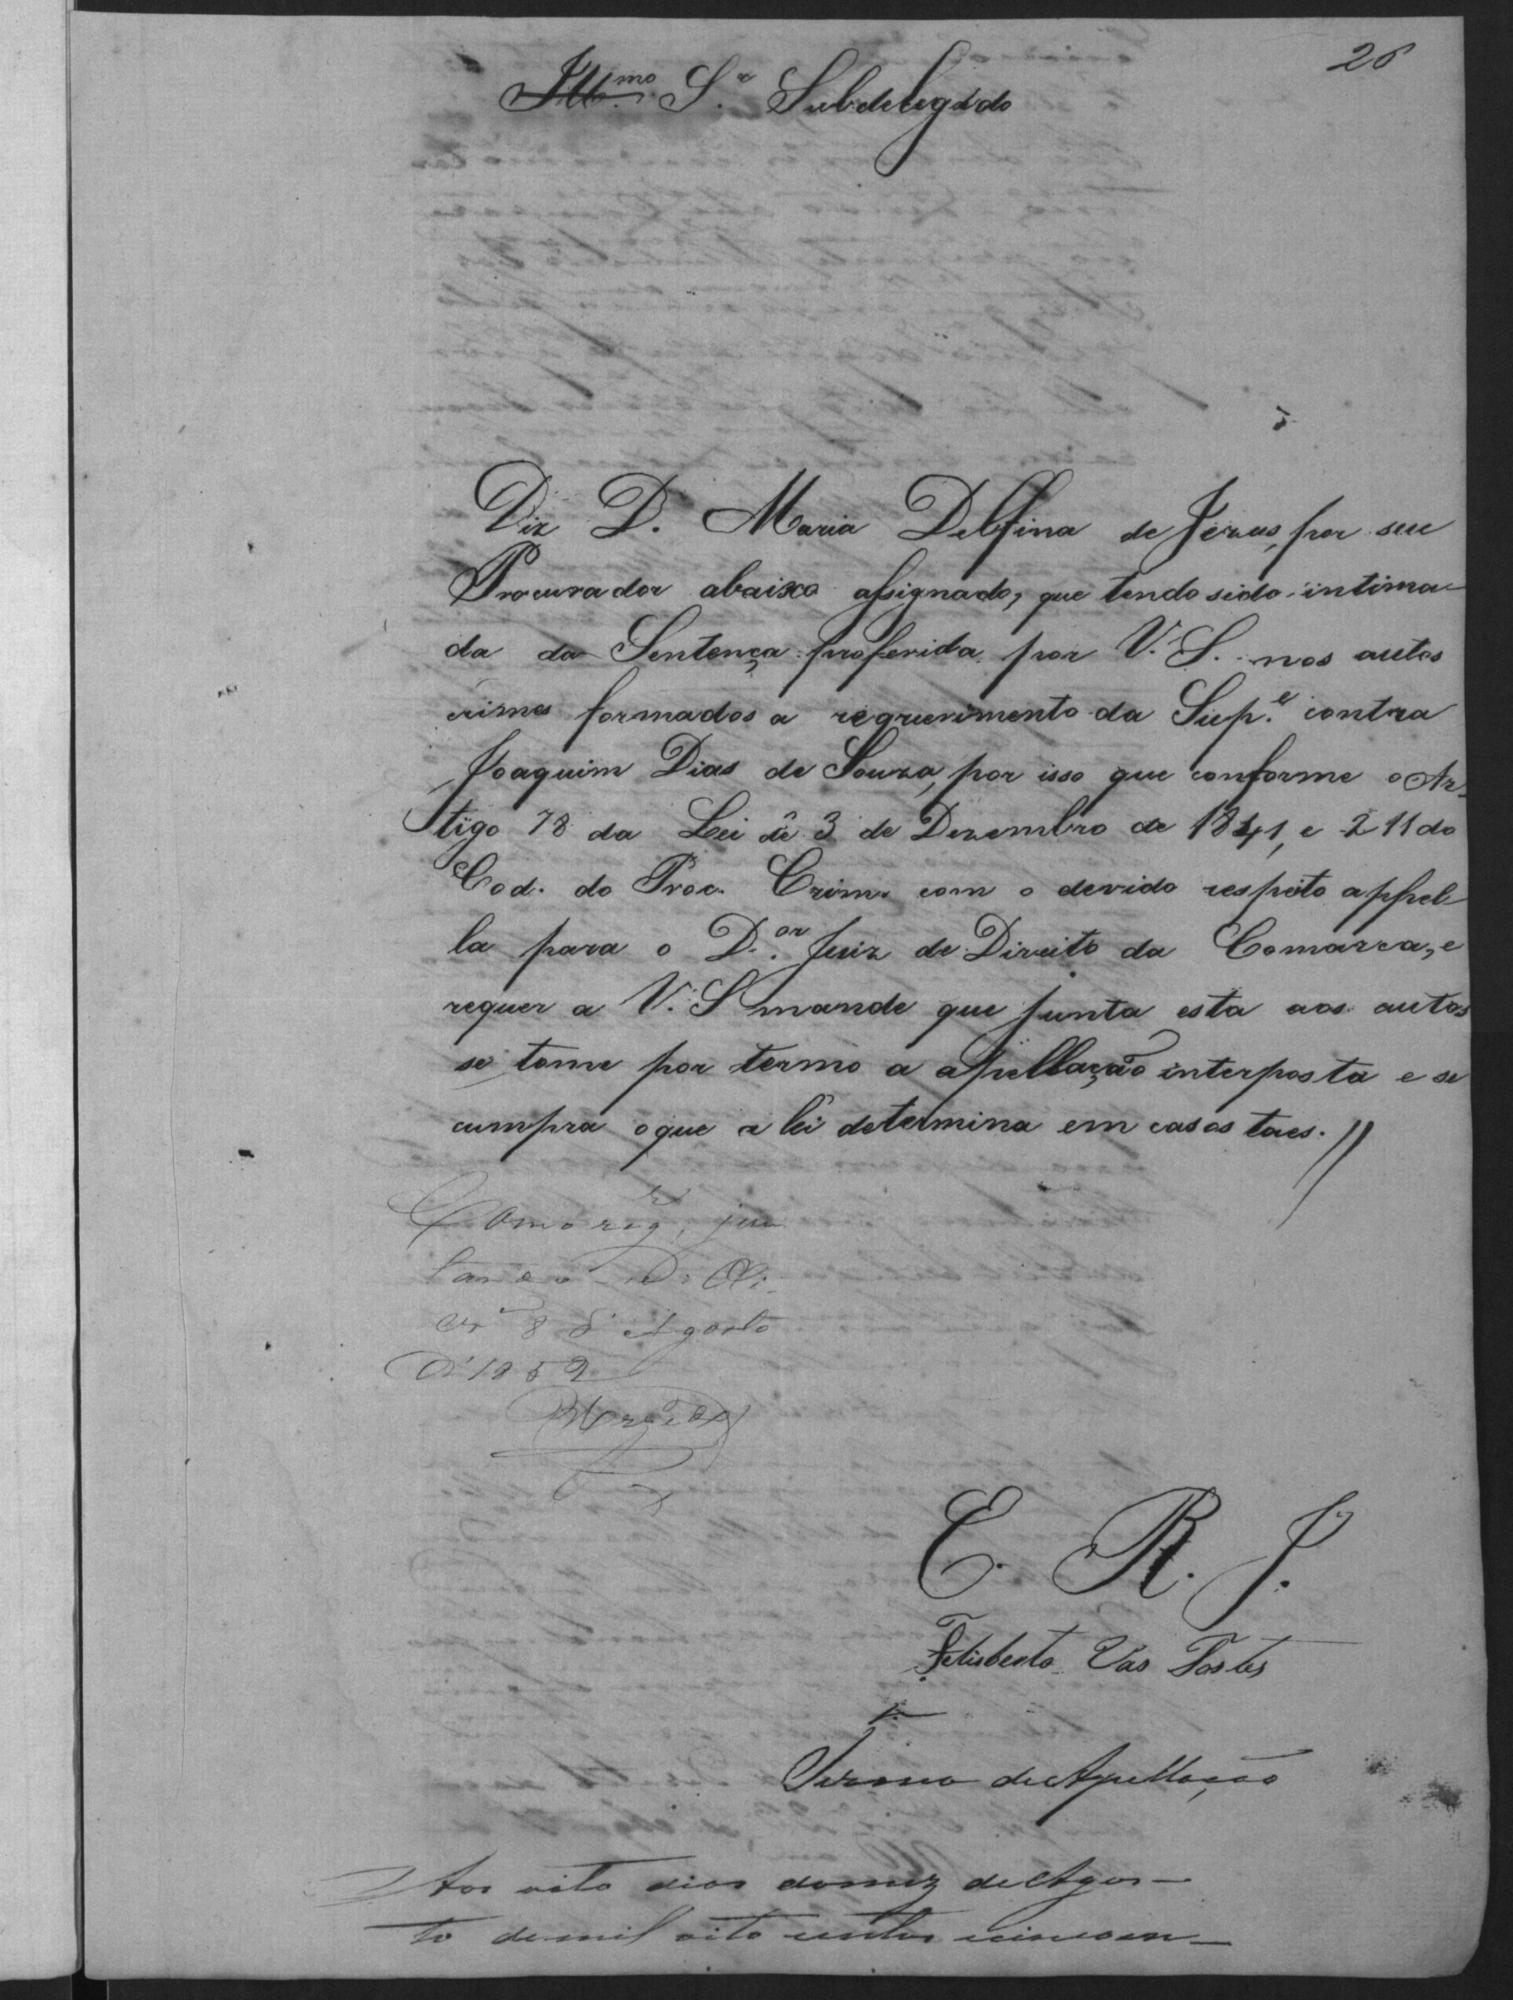 26
Ill.mo S.r Subdelegado
Diz D. Maria Delfina de Jezus, por seu
Procurador abaixo assignado, que tendo sido intima-
da da Sentença proferida por V. S. nos autos
crimes formados a requerimento da Sup.e contra
Joaquim Dias de Souza, por isso que conforme o Ar-
tigo 78 da Lei de 3 de Dezembro de 1841, e 211 do
Cod. do Proc. Crim. com o devido respeito appel-
la para o D.or Juiz de Direito da Comarca, e
requer a V. S mande que junta esta aos autos
se tome por termo a apellação interposta e se
cumpra o que a lei determina em casos taes. //
Como req.r, jun
Oli-
vr.a 8 d'Agosto
D'1852
E. R. J.
Felisberto Vas Tostes
Termo de Apellação
Aos oito dias do mez de Agos-
to de mil oito centos cincoen-